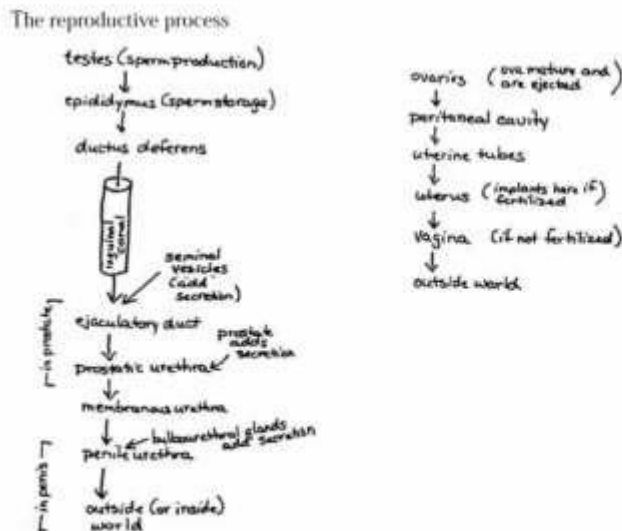 The reproductive process
testes (sperm production)
epididymus (sperm storage)
ductus deferens
inguinal
canal
seminal
vesicles
(add
secretion)
in prostate
ejaculatory duct
prostate
adds
secretion
prostatic urethra
membranous urethra
bulbourethral glands
add secretion
penile urethra
in penis
outside (or inside)
world
ovaries (ova mature and
are ejected)
peritoneal cavity
uterine tubes
uterus (implants here if
fertilized)
vagina (if not fertilized)
outside world